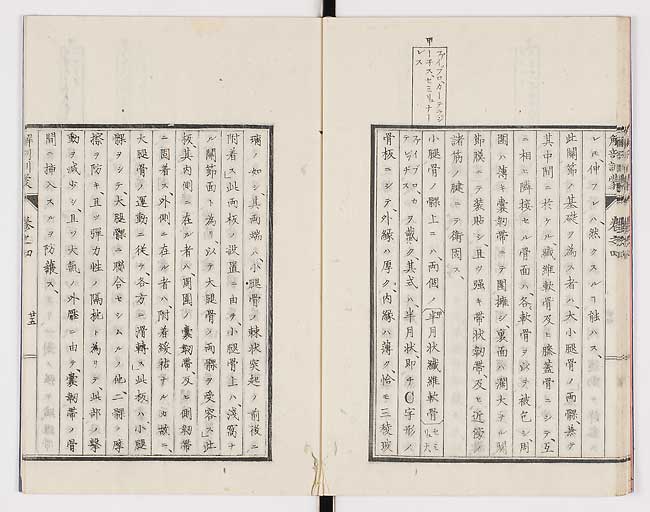 甲
ファイブロ、カーテーレジ
ーナス、セミリュナー
レス
レ𪜈伸フレハ、然クスルヿ能ハス、
此關節ノ基礎ヲ為ス者ハ、大小腿骨ノ両髁、並ヒ
其中間ニ於ケル、纖維軟骨及ヒ膝蓋骨ニシテ、互
ニ相ヒ隣接セル骨面ハ、各軟骨ヲ以テ被包シ、周
圍ハ薄キ囊韌帯ニテ圍擁シ、裏面ハ濶大ナル關
節膜ニテ裝貼シ、且ツ强キ帯状韌帯、及ヒ近傍ノ
諸筋ノ腱ニテ衛固ス、
小腿骨ノ髁上ニハ、両個ノ半月状纖維軟骨
ヲ戴ク其式ハ、半月状即チC字形ノ
骨板ニシテ、外縁ハ厚ク、内縁ハ薄ク、恰モ三稜玻
璃ノ如シ、其両端ハ、小腿骨ノ棘状突起ノ前後ニ
附着ス、此両板ノ設置ニ由テ、小腿骨上ハ、淺窩ナ
ル關節面ト為リ、以テ大腿骨ノ両髁ヲ受容ス、此
板其内側ニ在ル者ハ、周圍ノ囊韌帯ト側韌帯
ニ固着ス、外側ニ在ル者ハ、附着緩祐ナルカ故ニ、
大腿骨ノ運動ニ從ヒ、各方ニ滑轉ス、此板ハ小腿
髁ヲシテ、大腿髁ニ聯合セシムルノ他、二髁ノ摩
擦ヲ防キ、且ツ彈力性ノ隔牀ト為リテ、此部ノ撃
動ヲ减少シ、且ツ大氣ノ外壓ニ由テ、囊韌帯ノ骨
間ニ挿入スルヲ防護ス、
解剖訓蒙
卷之四
廿五